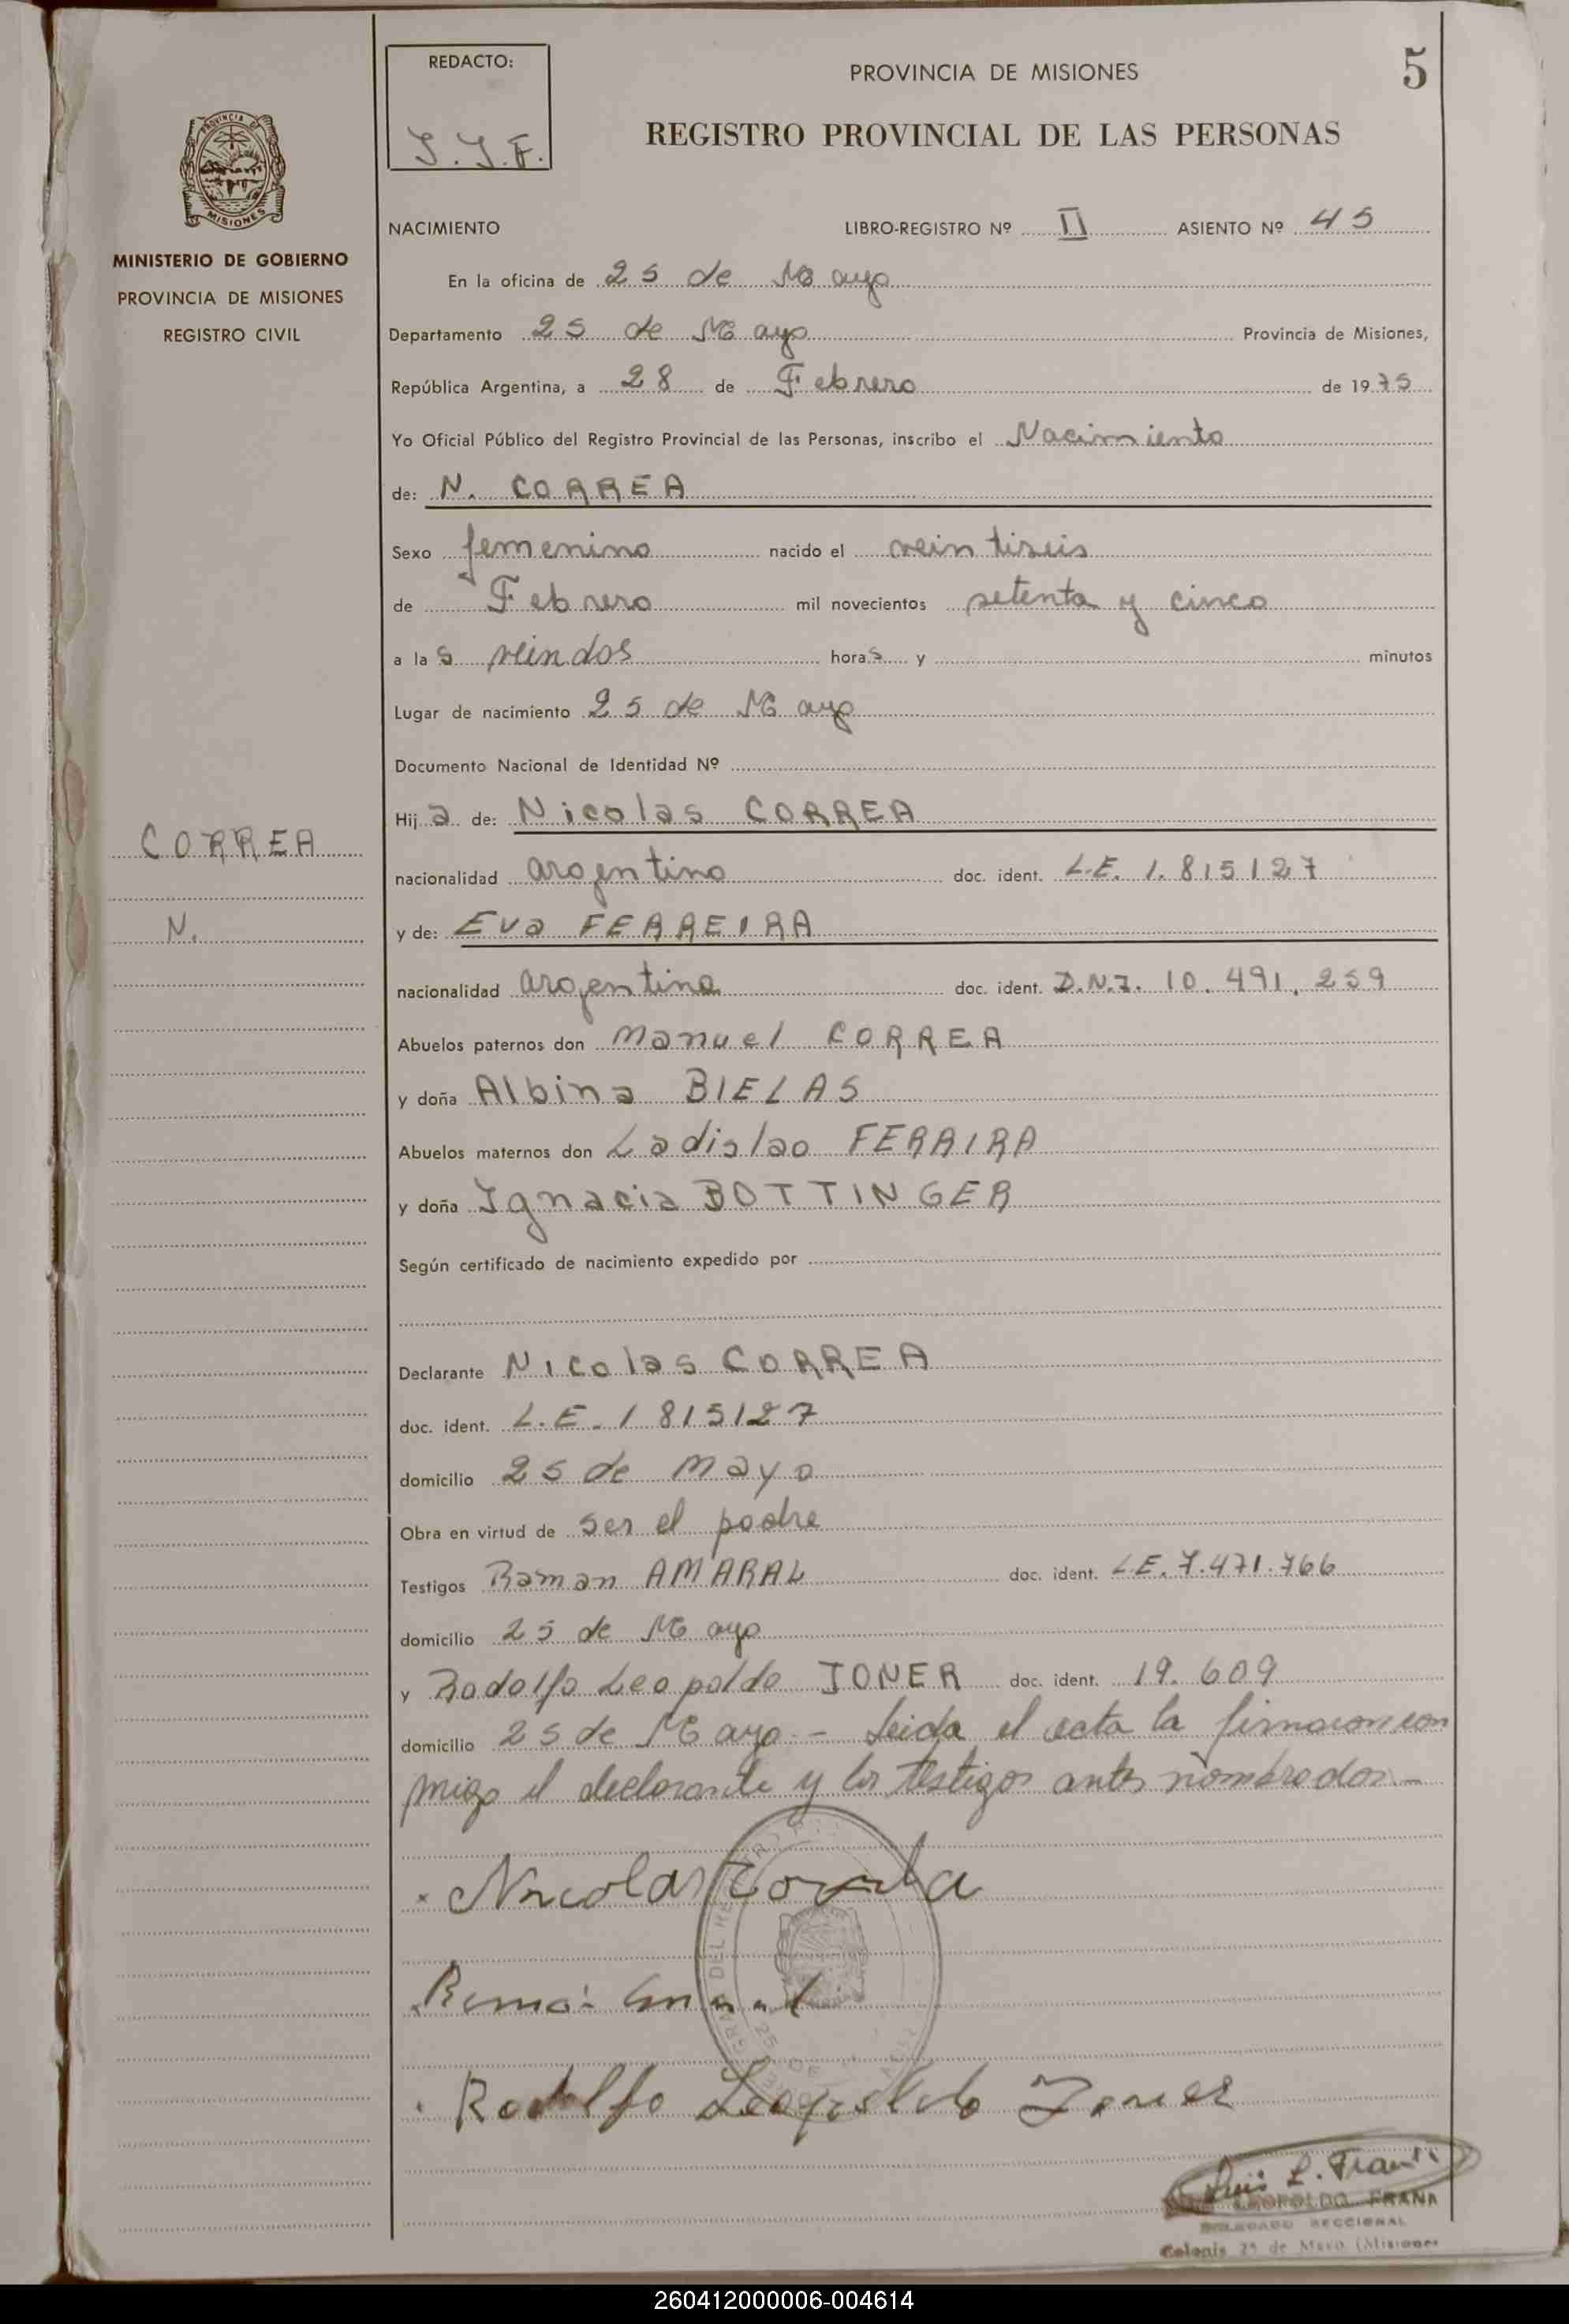 REDACTO:
J.J.F.
PROVINCIA DE MISIONES
5
REGISTRO PROVINCIAL DE LAS PERSONAS
PROVINCIA DE
MISIONES
MINISTERIO DE GOBIERNO
PROVINCIA DE MISIONES
REGISTRO CIVIL
NACIMIENTO LIBRO-REGISTRO Nº II ASIENTO Nº 45
En la oficina de 25 de Mayo
Departamento 25 de Mayo Provincia de Misiones,
República Argentina, a 28 de Febrero de 1975
Yo Oficial Público del Registro Provincial de las Personas, inscribo el Nacimiento
de: N. CORREA
Sexo femenino nacido el veintiseis
de Febrero mil novecientos setenta y cinco
a las veindos horas y minutos
Lugar de nacimiento 25 de Mayo
Documento Nacional de Identidad Nº
Hija de: Nicolas CORREA
CORREA
nacionalidad argentino doc. ident. L.E. 1.815127
N.
y de: Eva FERREIRA
nacionalidad argentina doc. ident. D.N.I. 10.491.259
Abuelos paternos don Manuel CORREA
y doña Albina BIELAS
Abuelos maternos don Ladislao FERRIRA
y doña Ignacia BOTTINGER
Según certificado de nacimiento expedido por
Declarante Nicolas CORREA
doc. ident. L.E. 1815127
domicilio 25 de Mayo
Obra en virtud de ser el padre
Testigos Raman AMARAL doc. ident. L.E. 7.471.766
domicilio 25 de Mayo
y Rodolfo Leopoldo JONER doc. ident. 19.609
domicilio 25 de Mayo - Leida el acta la firmaron con
migo el declarante y los testigos antes nombrados.-
Nicolas Correa
Rodolfo Leopoldo Joner
Luis L. Frank
LEOPOLDO FRANK
DELEGADO SECCIONAL
Colonia 25 de Mayo (Misiones
260412000006-004614